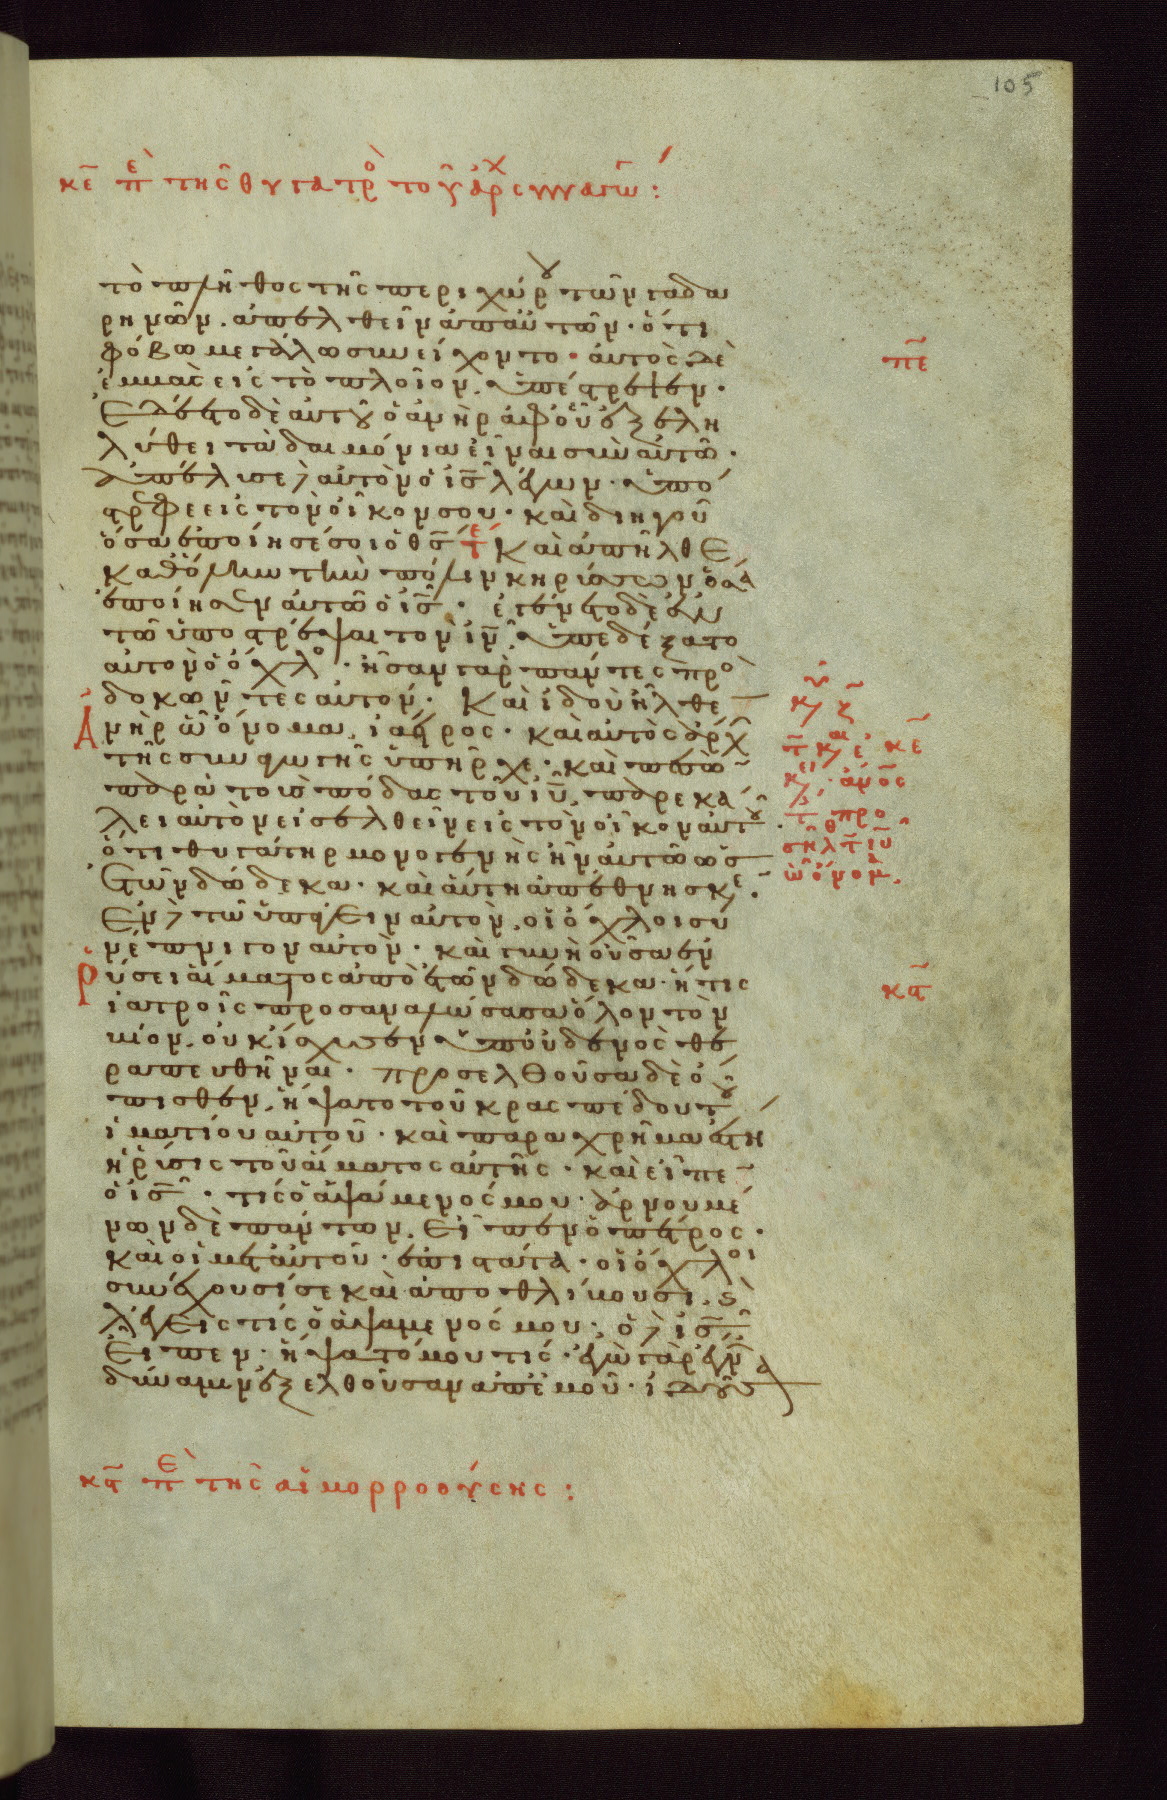 105
κε π̅ε̅ τῆς θυγατρὸ τοῦ ἀρχισυναγώ:
τὸ πλῆθος τῆς περιχώρου τῶν γαδα
ρηνῶν. ἀπελθεῖν ἀπ αὐτῶν· ὅτι
φόβω μεγάλω συνείχοντο· αὐτὸς δὲ
πε
ἐμβὰς εἰς τὸ πλοῖον, ὑπέστρεψεν·
Ἐδέετο δὲ αὐτοῦ ὁ ἀνὴρ ἀφ οὗ ἐξελη
λύθει τὰ δαιμόνια εἶναι σὺν αὐτῶ·
ἀπέλυσε δὲ αὐτὸν ὁ ις λέγων· ὑπό
στρεφε εἰς τὸν οἶκόν σου· καὶ διηγοῦ
ὅσα ἐποίησέ σοι ὁ θς τε Καὶ ἀπῆλθε
καθ ὅλην τὴν πόλιν κηρύσσων ὅσα
ἐποίησεν αὐτῶ ὁ ις· ἐγένετο δὲ ἐν
τῶ ὑποστρέψαι τὸν ιν, ἀπεδέξατο
αὐτὸν ὁ ὄχλο· ἦσαν γὰρ πάντες προ
δοκῶντες αὐτόν· Καὶ ἰδοὺ ἦλθε
Ἀνὴρ ὧ ὄνομα ἰάειρος· καὶ αὐτὸς ἄρχ
τῆς συναγωγῆς ὑπῆρχε· καὶ πεσὼ
παρὰ τοὺς πόδας τοῦ ιυ, παρεκά
λει αὐτὸν εἰσελθεῖν εἰς τὸν οἶκον αὐτοῦ
ὅτι θυγάτηρ μονογενὴς ἦν αὐτῶ ὡς
ἐτῶν δώδεκα· καὶ αὕτη ἀπέθνησκε.
Ἐν δὲ τῶ ὑπάγειν αὐτὸν, οἱ ὄχλοι συ
νέπνιγον αὐτὸν· καὶ γυνὴ οὖσα ἐν
ῥύσει αἵματος ἀπὸ ἐτῶν δώδεκα· ἥτις
κα
ἰατροῖς προσαναλώσασα ὅλον τὸν
βίον, οὐκ ἴσχυσεν ὑπ οὐδενὸς θε
ραπευθῆναι· προσελθοῦσα δὲ ὄ
πισθεν, ἥψατο τοῦ κρασπέδου τοῦ
ἱματίου αὐτοῦ· καὶ παραχρῆμα ἔστη
ἡ ῥύσις τοῦ αἵματος αὐτῆς· καὶ εἶπε
ὁ ις· τίς ὁ ἁψάμενός μου· ἀρνουμέ
νων δὲ πάντων, Εἶπεν ὁ πέτρος·
καὶ οἱ μετ αὐτοῦ· ἐπιστάτα· οἱ ὄχλοι
συνέχουσί σε καὶ ἀποθλίβουσι, καὶ
λέγεις τίς ὁ ἁψάμενός μου· ὁ δὲ ις
Εἶπεν· ἥψατό μου τίς· ἐγὼ γὰρ ἔγν
δύναμιν ἐξελθοῦσαν ἀπ ἐμοῦ· ἰδοῦσα
κα π̅ε̅ τῆς αἱμορροούσης: